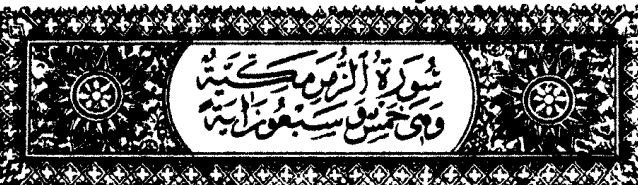 سُورَةُ الزُّمَرِ مَكِّيَّةٌ
وَهِيَ خَمْسٌ وَسَبْعُونَ اٰيَةً